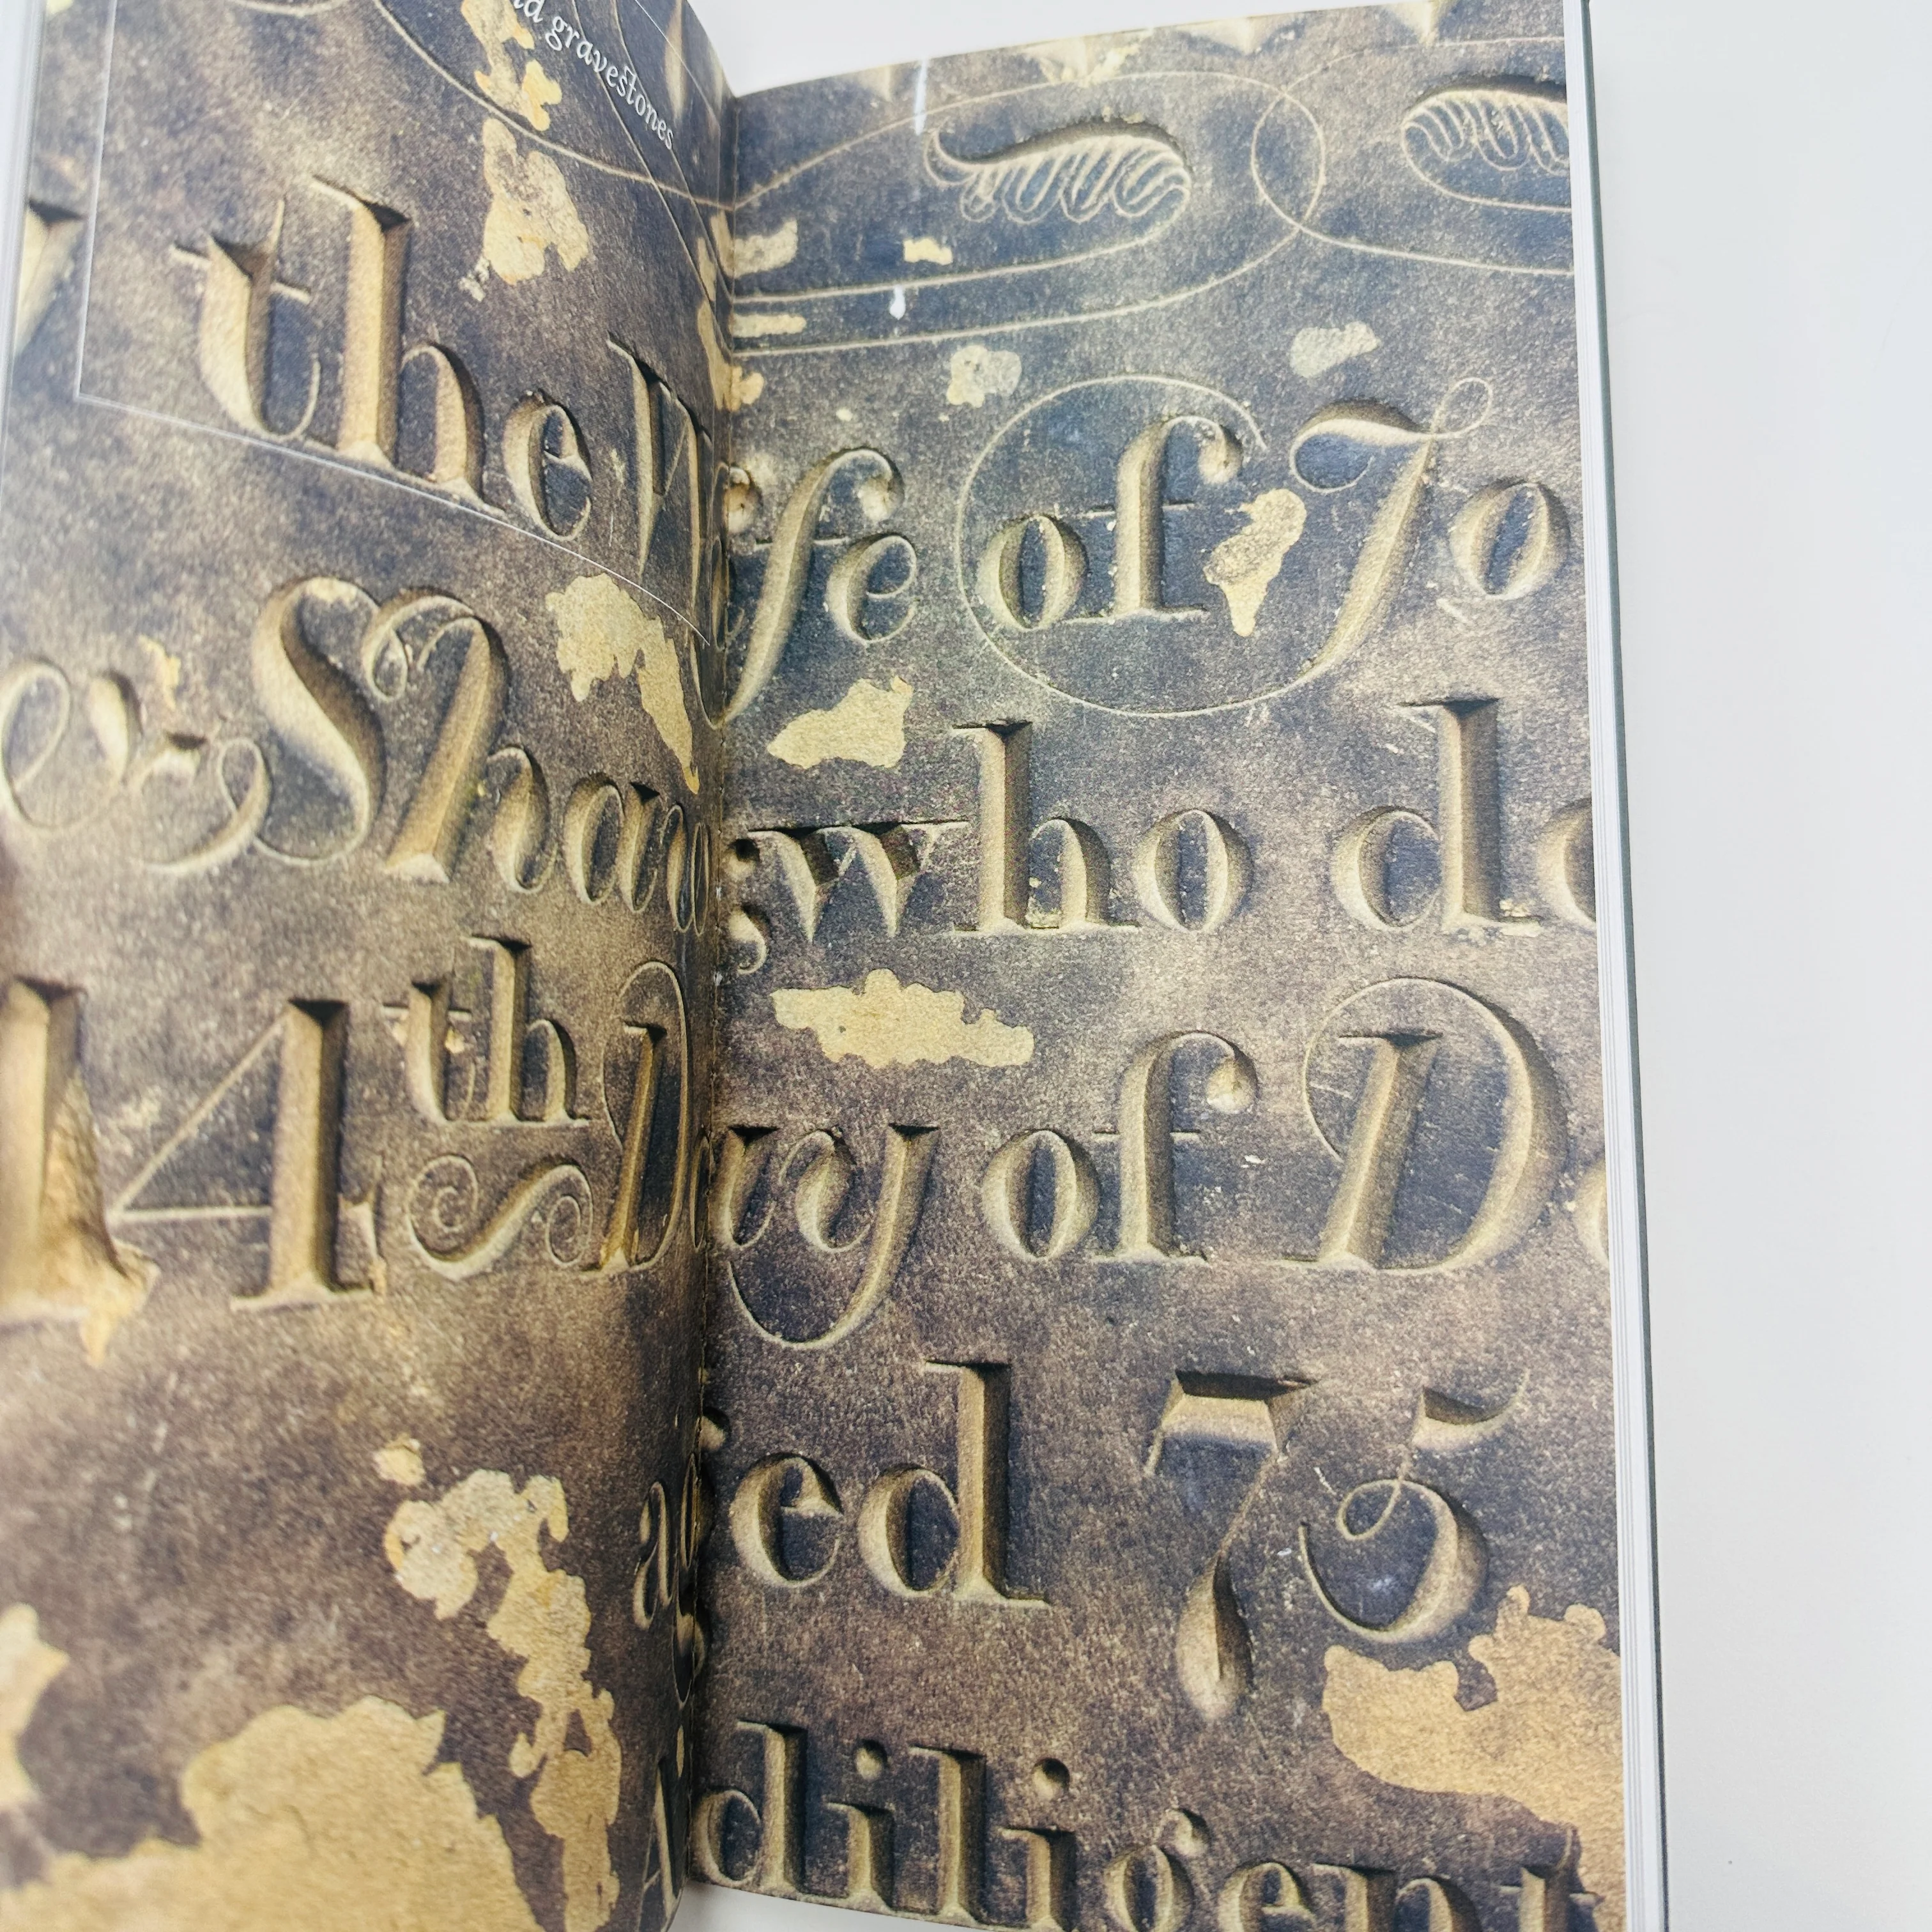 gravestones
the Wife of Jo
& Shaw; who de
14th Day of De
aged 75
A diligent